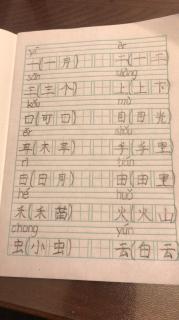 yī èr
一(一月) 二(十二)
sān shàng
三(三个) 上(上下)
kǒu mù
口(可口) 目(目光)
ěr shǒu
耳(木耳) 手(手里)
rì tián
日(日月) 田(田里)
hé huǒ
禾(禾苗) 火(火山)
chóng yún
虫(小虫) 云(白云)